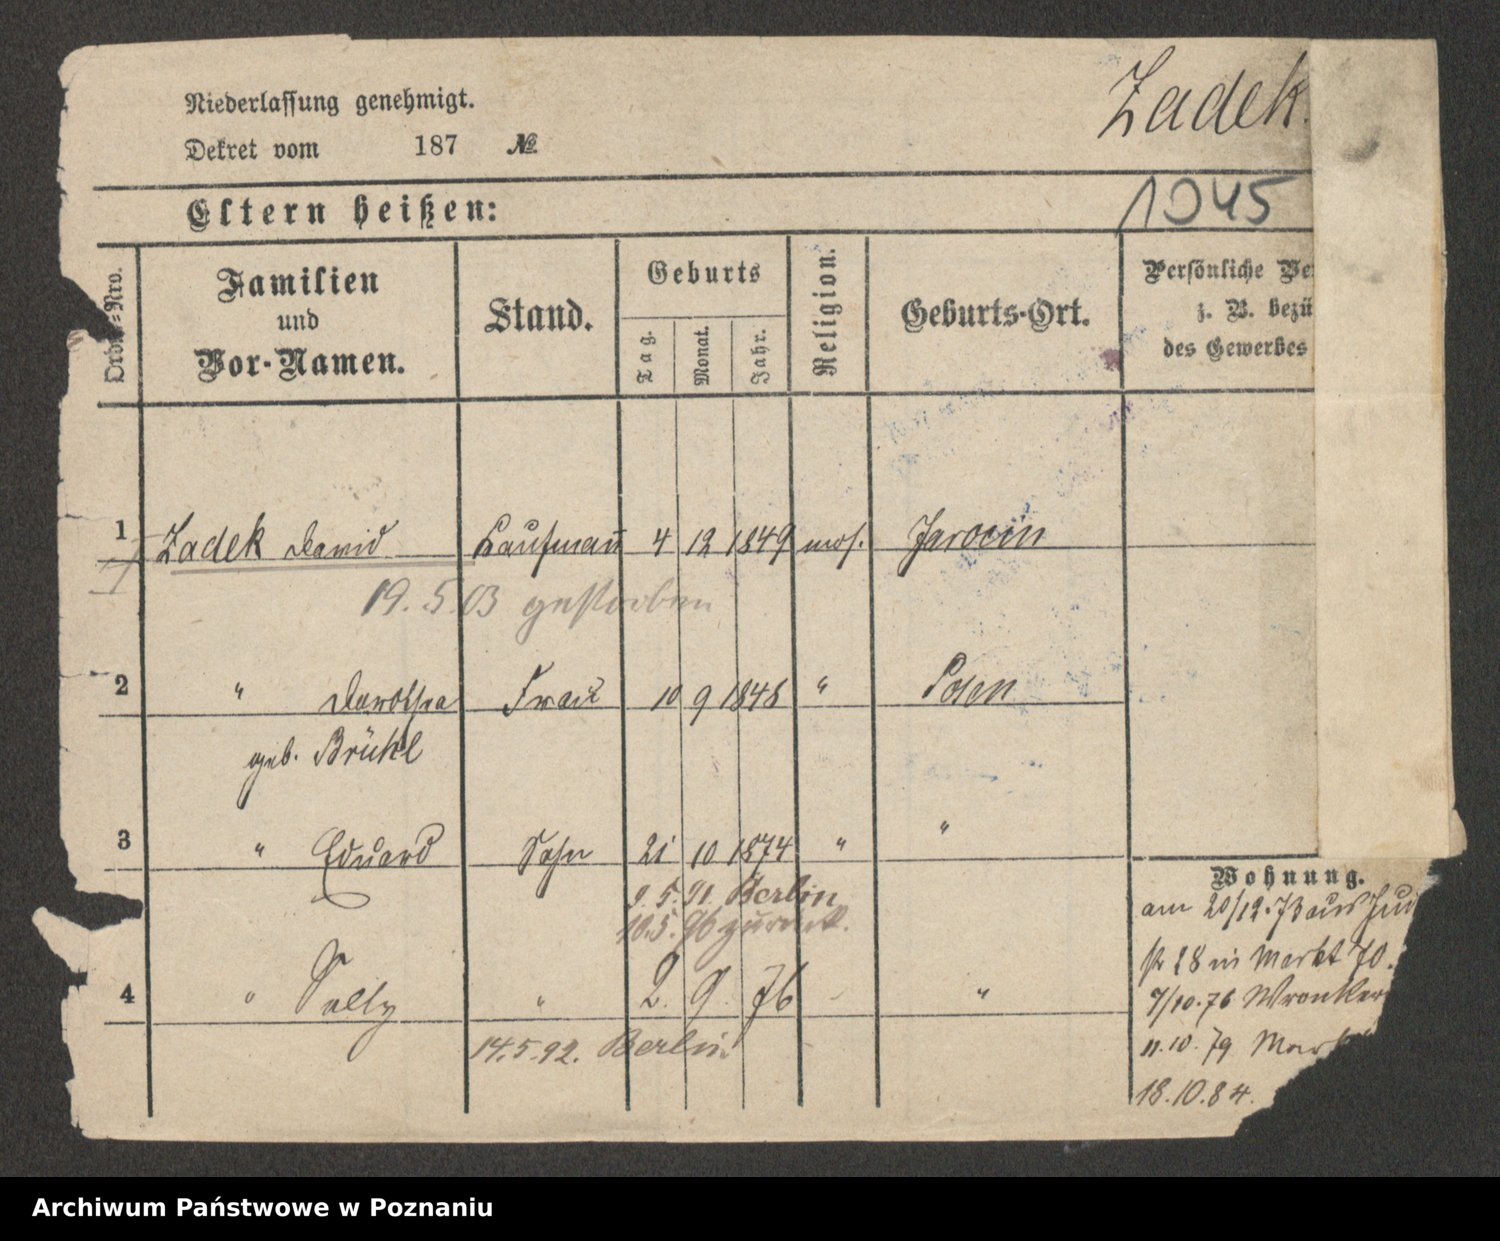 Niederlassung genehmigt.
Zadek.
Dekret vom 187 №
Eltern heißen:
1045
Ordn.=Nro.
Familien
und
Vor-Namen.
Stand.
Geburts
Tag.
Monat.
Jahr.
Religion.
Geburts-Ort.
Persönliche Ve
z. B. bezü
des Gewerbes
1 Zadek David Kaufmann 4 12 1849 mos. Jarocin
19. 5. 03 gestorben
2 " Dorothea Frau 10 9 1848 " Posen
geb. Brühl
3 " Eduard Sohn 21 10 1874 " "
9. 5. 91 Berlin
10. 5. 96 zurück.
4 " Sally " 2. 9. 76 - "
14. 5. 92. Berlin
Wohnung.
am 20/12. 73 aus Jud
str 28 in Markt 70.
7/10. 76 Wronker
11. 10. 79 Mark
18. 10. 84.
Archiwum Państwowe w Poznaniu